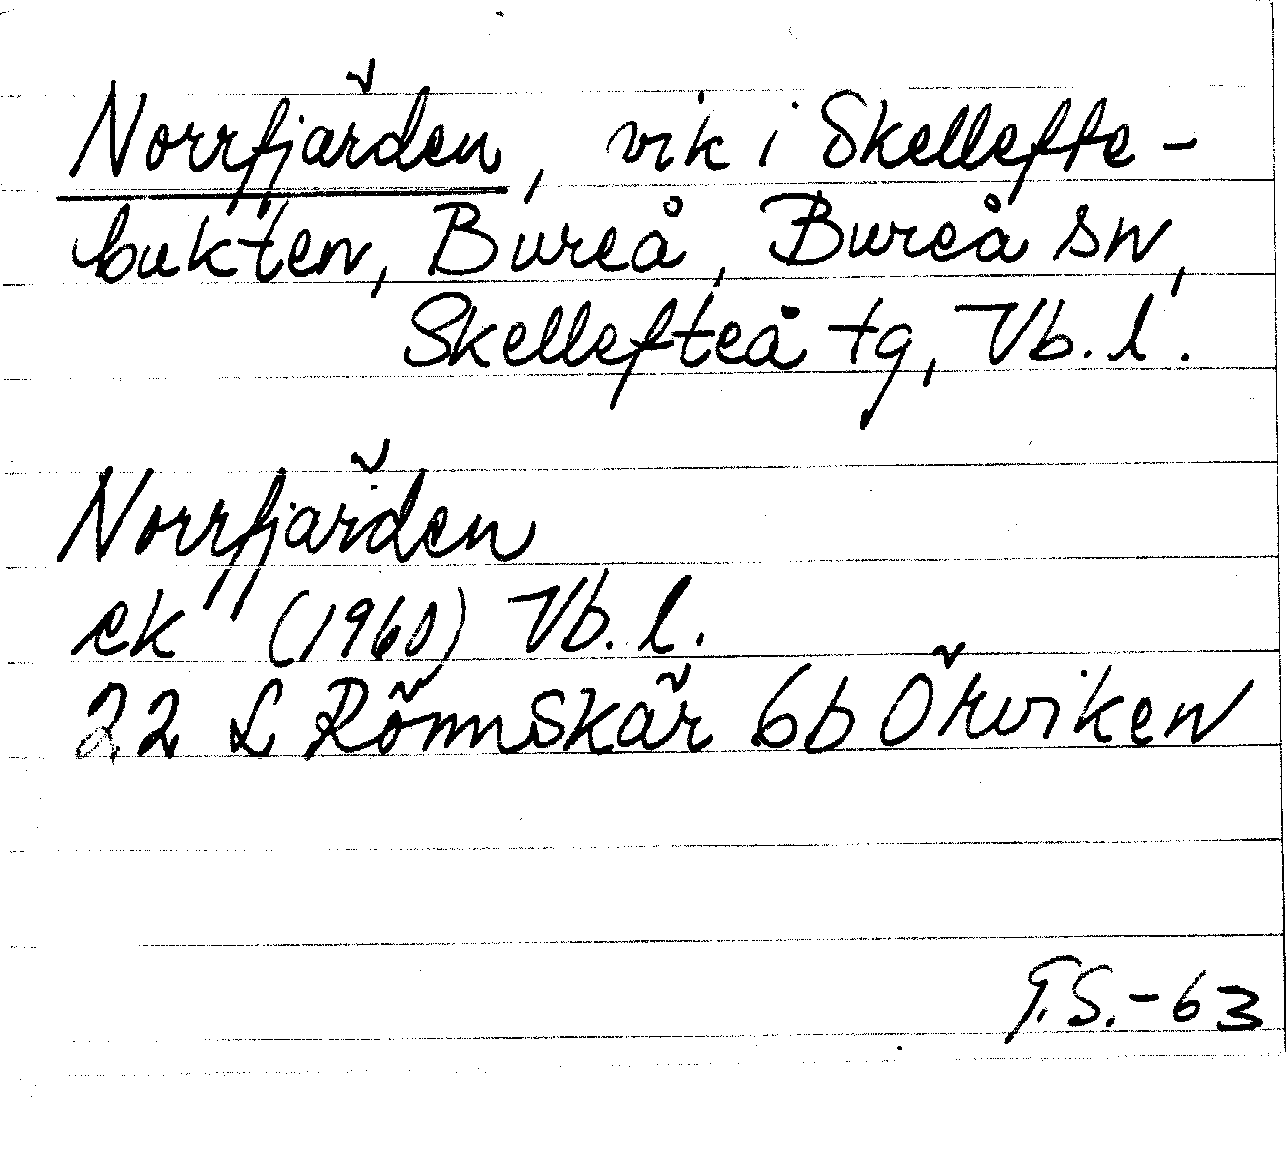 Norrfjärden, vik i Skellefte-
bukten, Bureå, Bureå sn,
Skellefteå tg, Vb. l.
Norrfjärden
ek (1960) Vb. l.
22 L Rönnskär 6b Örviken
G.S.-63